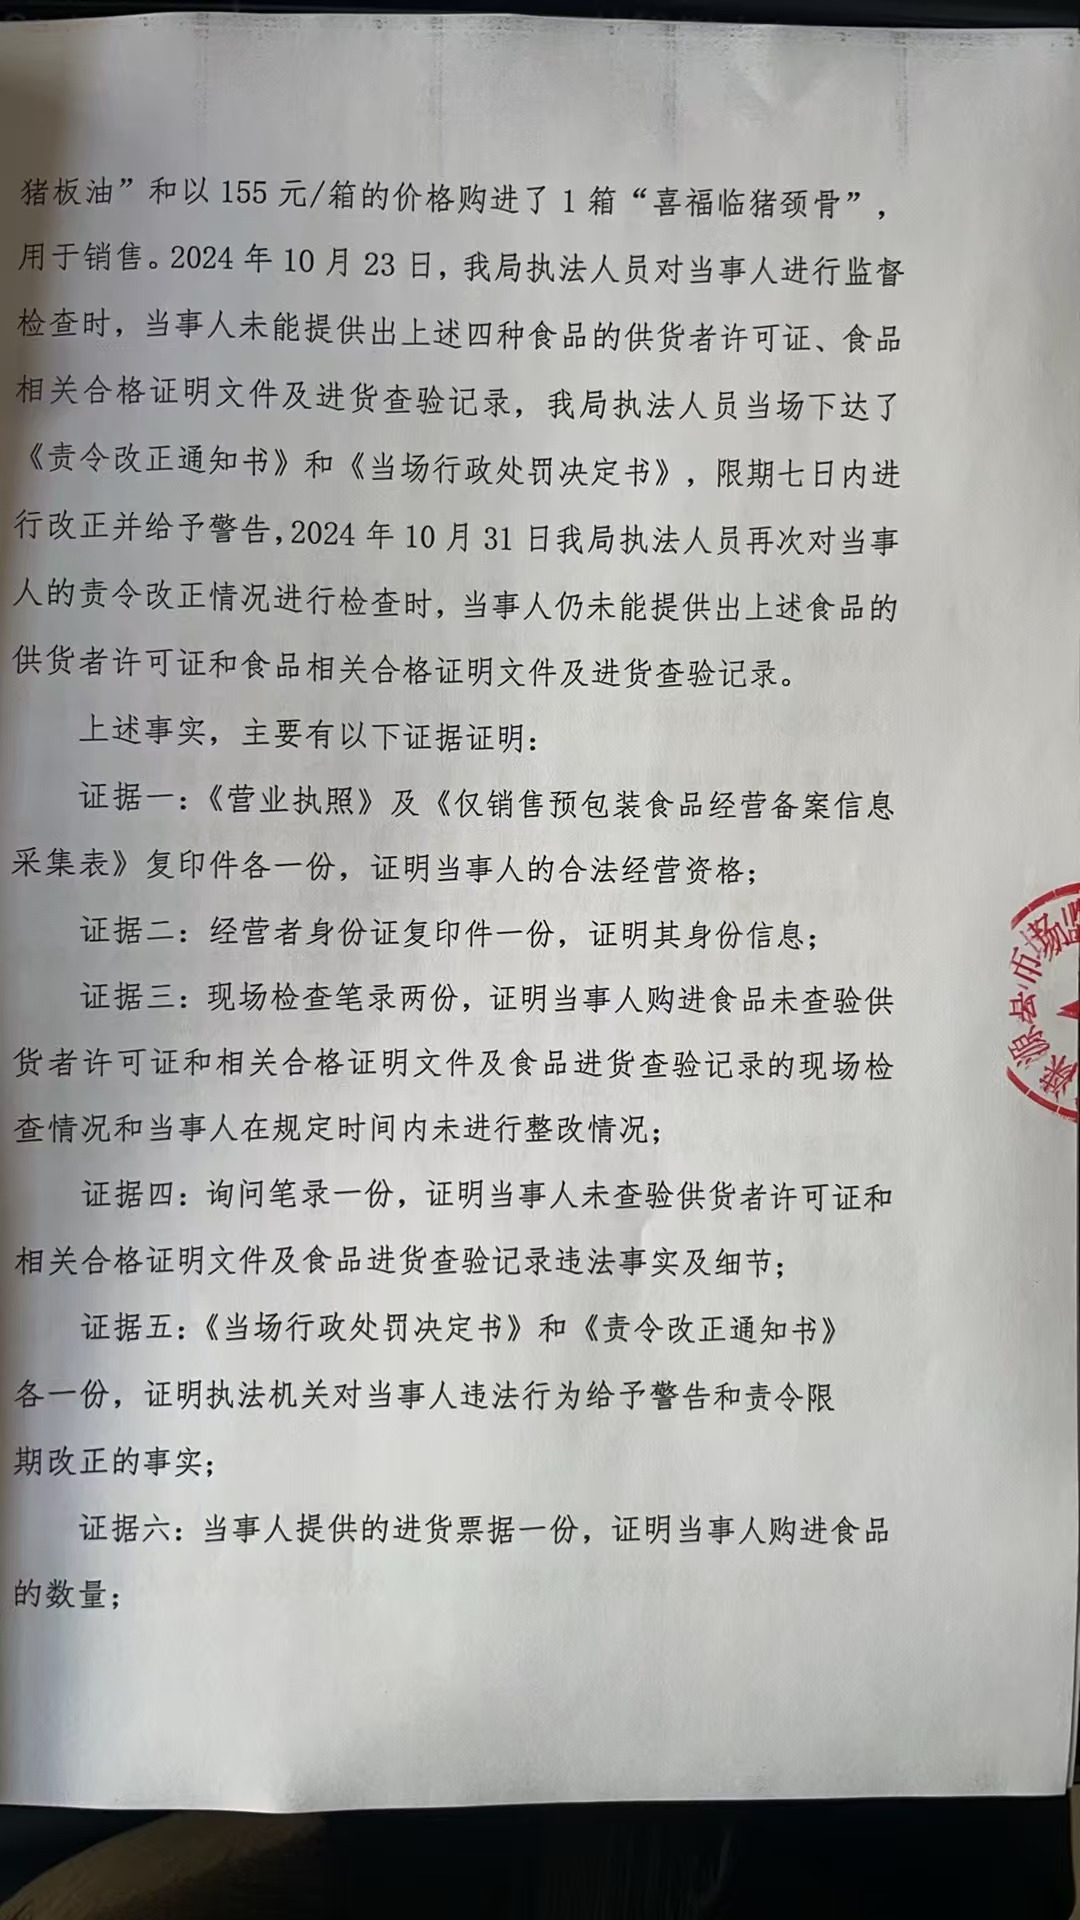 猪板油”和以 155 元/箱的价格购进了 1 箱“喜福临猪颈骨”，
用于销售。2024 年 10 月 23 日，我局执法人员对当事人进行监督
检查时，当事人未能提供出上述四种食品的供货者许可证、食品
相关合格证明文件及进货查验记录，我局执法人员当场下达了
《责令改正通知书》和《当场行政处罚决定书》，限期七日内进
行改正并给予警告，2024 年 10 月 31 日我局执法人员再次对当事
人的责令改正情况进行检查时，当事人仍未能提供出上述食品的
供货者许可证和食品相关合格证明文件及进货查验记录。
上述事实，主要有以下证据证明：
证据一：《营业执照》及《仅销售预包装食品经营备案信息
采集表》复印件各一份，证明当事人的合法经营资格；
证据二：经营者身份证复印件一份，证明其身份信息；
证据三：现场检查笔录两份，证明当事人购进食品未查验供
货者许可证和相关合格证明文件及食品进货查验记录的现场检
查情况和当事人在规定时间内未进行整改情况；
证据四：询问笔录一份，证明当事人未查验供货者许可证和
相关合格证明文件及食品进货查验记录违法事实及细节；
证据五：《当场行政处罚决定书》和《责令改正通知书》
各一份，证明执法机关对当事人违法行为给予警告和责令限
期改正的事实；
证据六：当事人提供的进货票据一份，证明当事人购进食品
的数量；
源县市场监